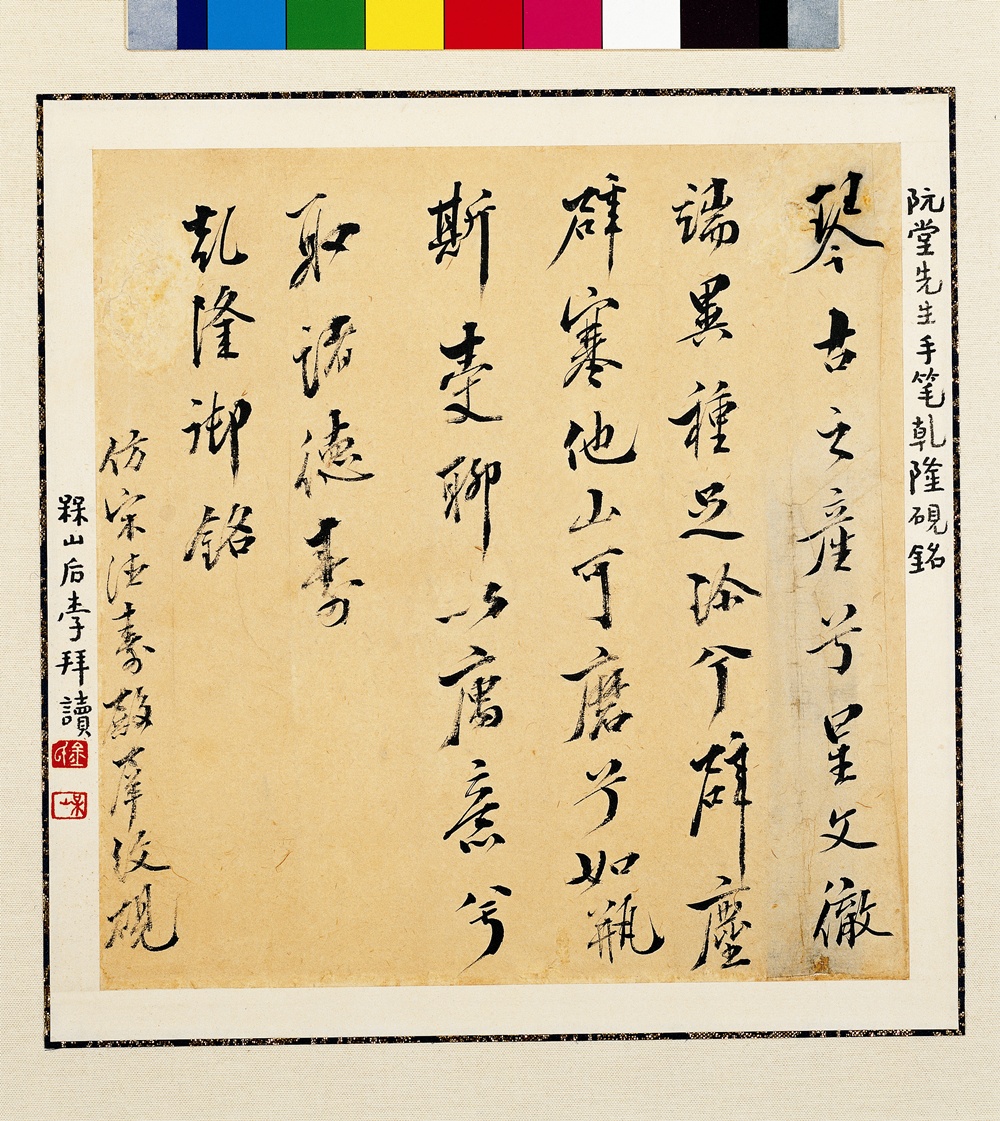 阮堂先生手笔乾隆硯銘
琴古之産兮星文徹
端異種足珍兮辟塵
辟寒他山可磨兮如瓶
斯聊以寓意兮
取諸德壽
乾隆御銘
仿宋德壽殿犀紋硯
槑山后斈拜讀